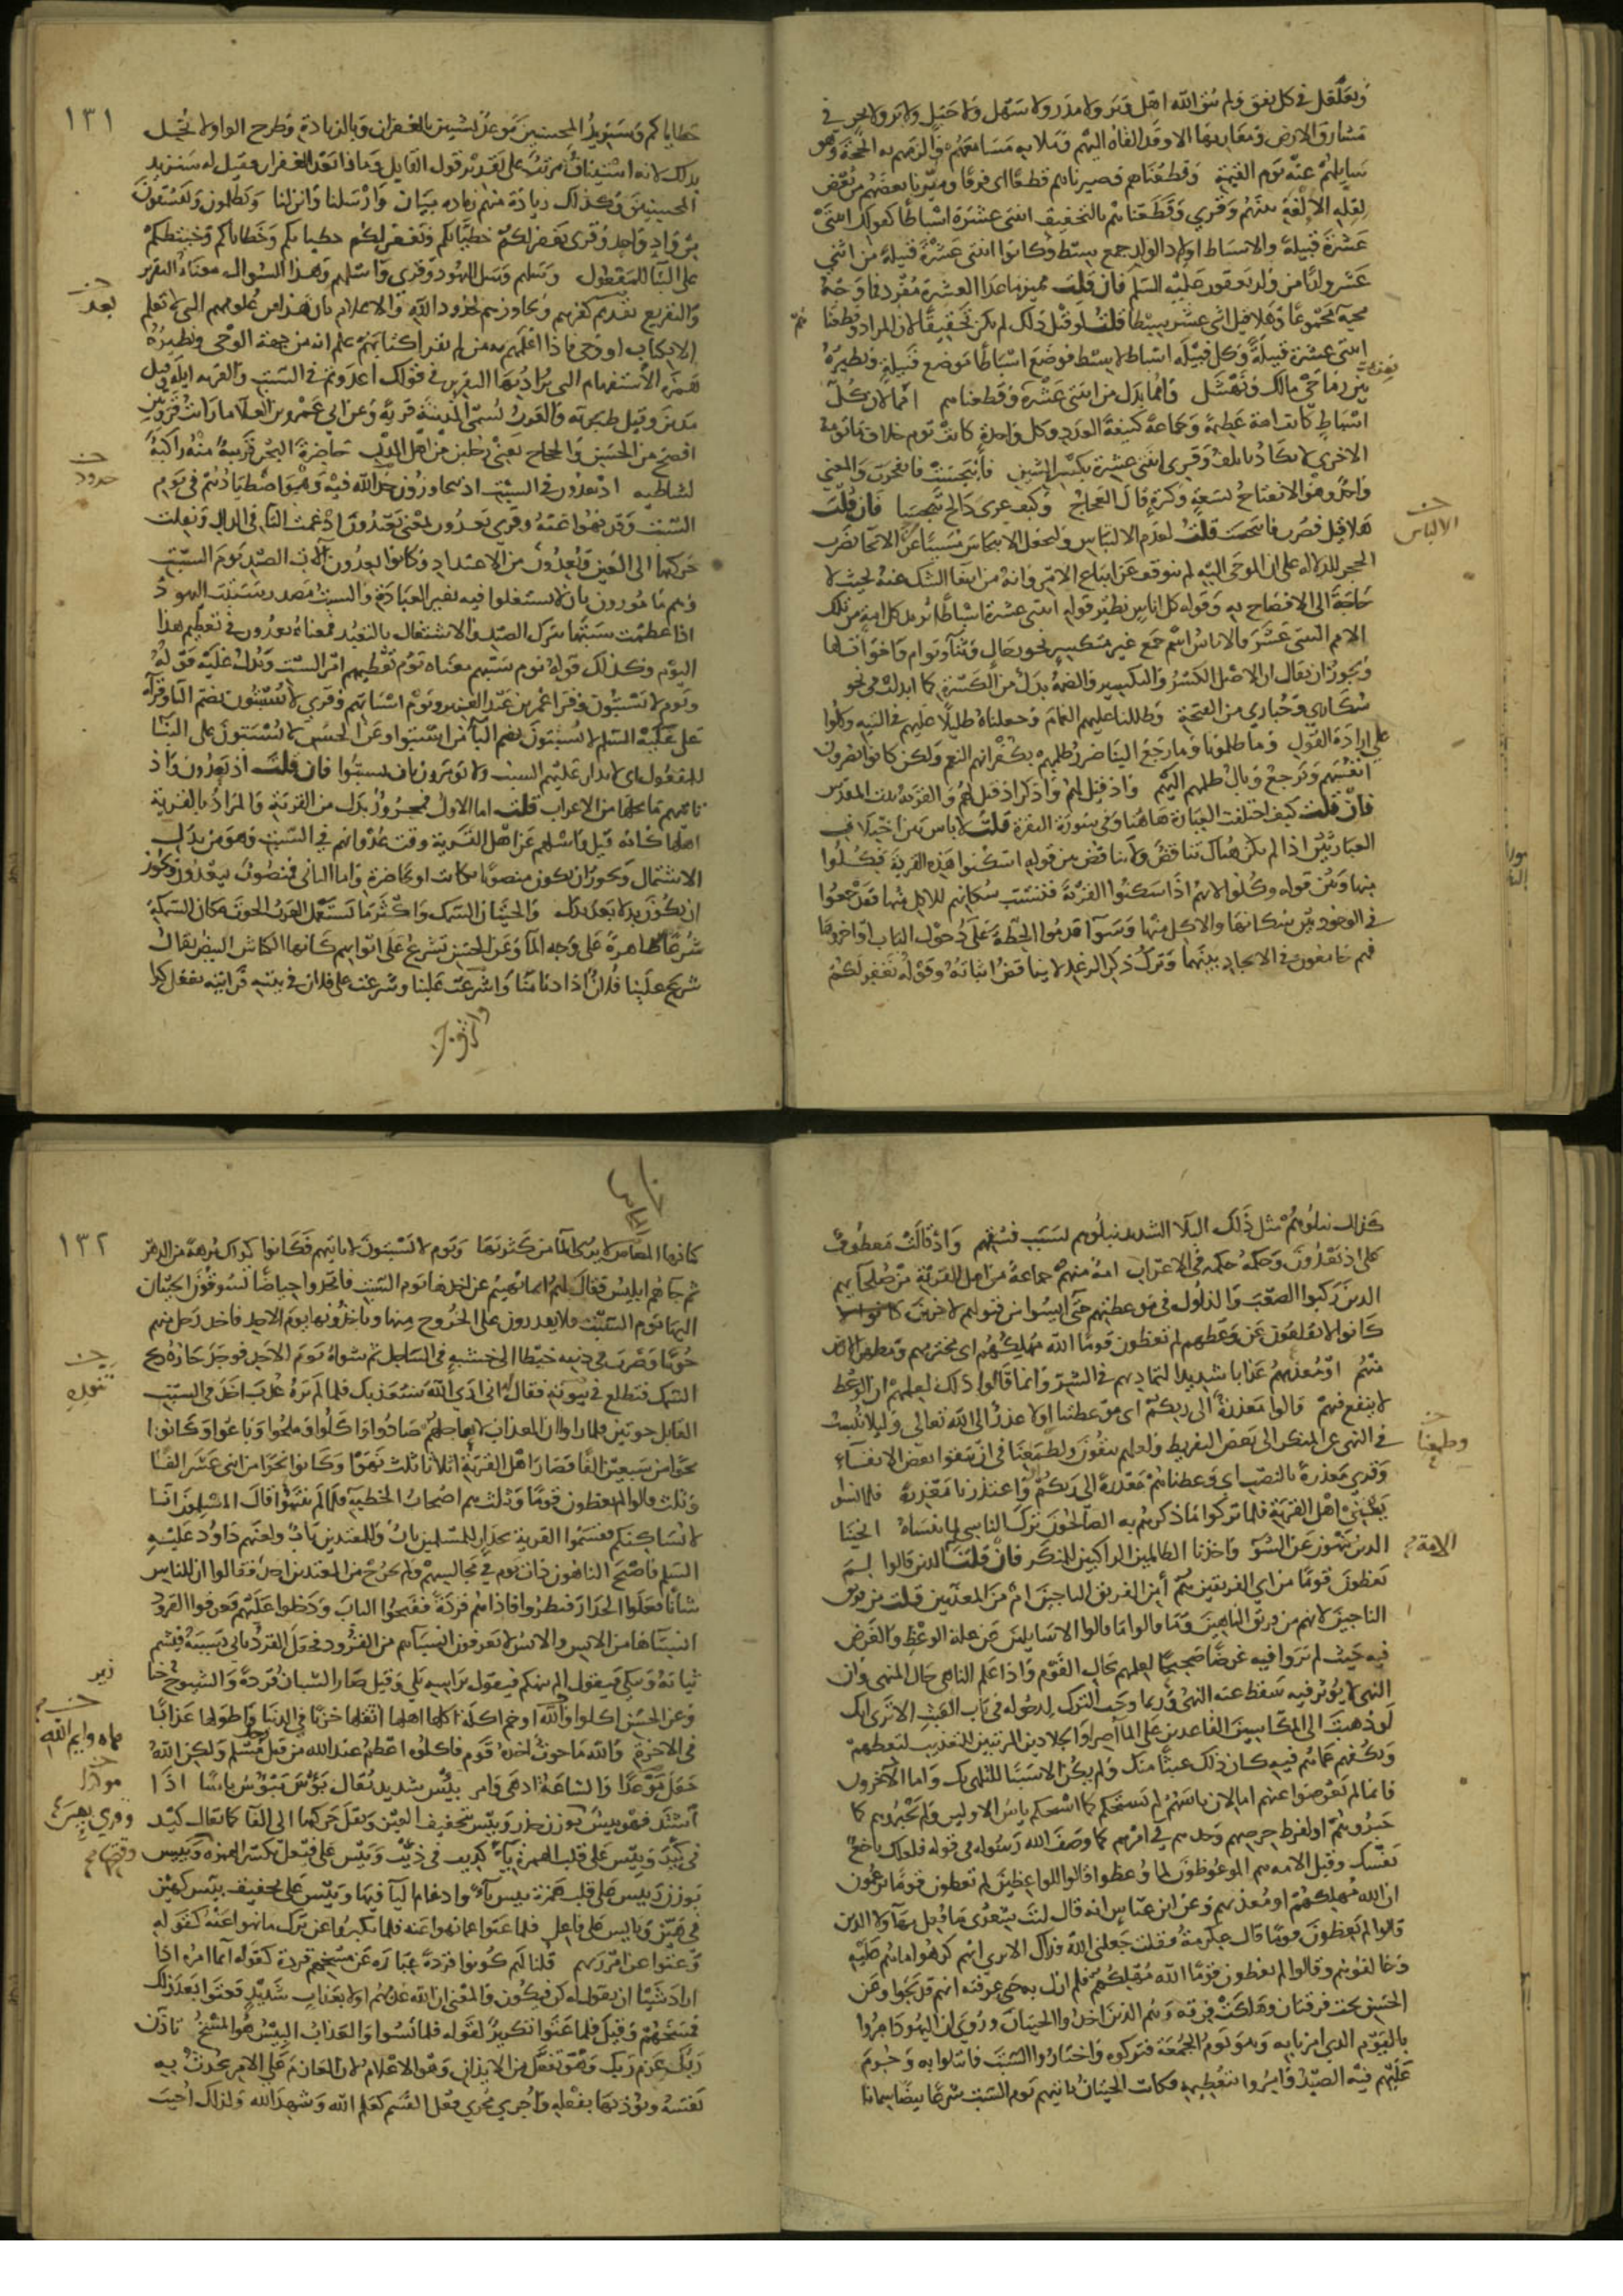 وتغلغل في كل نفق ولم يبق الله اهل وبر ولا مدر ولا سهل ولا جبل ولا بر ولا بحر في
مشارق الارض ومغاربها الا وقد القاه اليهم وملا به مسامعهم والزمهم به الحجة وهو
سايلهم عنه يوم القيمة وقطعناهم فصيرناهم قطعا اي فرقا وميزنا بعضهم من بعض
لقلة الالفة بينهم وقري وقطعناهم بالتخفيف اثنتي عشرة اسباطا كقولك اثنتي
عشرة قبيلة والاسباط اولاد الولد جمع سبط وكانوا اثنتي عشرة قبيلة من اثني
عشر ولدا من ولد يعقوب عليه السلم فان قلت مميز ما عدا العشرة مفرد فما وجه
مجيه مجموعا وهلا قيل اثني عشر سبطا قلت لو قيل ذلك لم يكن تحقيقا لان المراد وقطعنا
اثنتي عشرة قبيلة وكل قبيلة اسباط لا سبط فوضع اسباطا موضع قبيلة ونظيره
بين رماحي مالك ونهشل وامما بدل من اثنتي عشرة وقطعناهم امما لان كل
اسباط كانت امة عظيمة وجماعة كثيفة العدد وكل واحدة كانت توم خلاف ما تومه
الاخرى لا تكاد تاتلف وقري اثنتي عشرة بكسر الشين فانبجست فانفجرت والمعنى
واحد وهو الانفتاح بسعة وكثرة قال العجاج وكيف غربي دالج تبجسا فان قلت
هلا قيل فضرب فانبجست قلت لعدم الالتباس وليجعل الانبجاس مسببا عن الايحا بضرب
الحجر للدلاله على ان الموحى اليه لم يتوقف عن اتباع الامر وانه من انتفا الشك عنه بحيث لا
حاجة الى الافصاح به وقوله كل اناس نظير قوله اثنتي عشرة اسباطا يريد كل امة من تلك
الامم الثنتي عشرة والاناس اسم جمع غير تكسير نحو رخال وتناء وتوام واخوات لها
ويجوز ان يقال ان الاصل الكسر والتكسير والضمة بدل من الكسرة كما ابدلت في نحو
سكارى وغيارى من الفتحة وظللنا عليهم الغمام وجعلناه ظليلا عليهم في التيه وكلوا
على ارادة القول وما ظلمونا وما رجع الينا ضرر ظلمهم بكفرانهم النعم ولكن كانوا يضرون
انفسهم ويرجع وبال ظلمهم اليهم واذ قيل لهم واذكر اذ قيل لهم والقرية بيت المقدس
فان قلت كيف اختلفت العبارة هاهنا وفي سورة البقرة قلت لا باس باختلاف
العبارتين اذا لم يكن هناك تناقض ولا تناقض بين قوله اسكنوا هذه القرية وكلوا
منها وبين قوله وكلوا لانهم اذا سكنوا القرية فتسببت سكناهم للاكل منها فقد جمعوا
في الوجود بين سكناها والاكل منها وسوآ قدموا الحطة على دخول الباب او اخروها
فهم جامعون في الايجاد بينهما وترك ذكر الرغد لا يناقض اثباته وقوله نغفر لكم
الالتباس
١٣١
خطاياكم وسنزيد المحسنين موعد بشيين بالغفران وبالزيادة وطرح الواو لا يخل
بذلك لانه استيناف مرتب على تقدير قول القايل وماذا بعد الغفران فقيل له سنزيد
المحسنين وكذلك زيادة منهم زيادة بيان وارسلنا وانزلنا ويظلمون ويفسقون
من واد واحد وقرى يغفر لكم خطياتكم وتغفر لكم خطياتكم وخطاياكم وخطيئتكم
على البنا للمفعول وسلهم وسل اليهود وقري واسلهم وهذا السوال معناه التقرير
والتقريع بقديم كفرهم وتجاوزهم لحدود الله والاعلام بان هذا من علومهم التي لا تعلم
الا بكتاب او وحي فاذا اعلمهم به من لم يقرا كتابهم علم انه من جهة الوحي ونظيره
همزة الاستفهام التي يراد بها التقرير في قولك اعدوتم في السبت والقرية ايلة وقيل
مدين وقيل طبرية والعرب تسمي المدينة قرية وعن ابي عمرو بن العلا ما رايت قرويين
افصح من الحسن والحجاج يعني رجلين من اهل المدن حاضرة البحر قريبة منه راكبة
لشاطيه اذ يعدون في السبت اذ يتجاوزون حد الله فيه وهو اصطيادهم في يوم
السبت وقد نهوا عنه وقري يعدون بمعنى يعتدون ادغمت التا في الدال ونقلت
حركتها الى العين ويعدون من الاعداد وكانوا يعدون آلات الصيد يوم السبت
وهم مامورون بان لا يشتغلوا فيه بغير العبادة والسبت مصدر سبتت اليهود
اذا عظمت سبتها بترك الصيد والاشتغال بالتعبد فمعناه يعدون في تعظيم هذا
اليوم وكذلك قوله يوم سبتهم معناه يوم تعظيمهم امر السبت ويدل عليه قوله
ويوم لا يسبتون وقرا عمر بن عبد العزيز يوم اسباتهم وقري لا يسبتون بضم البا وقرا
علي عليه السلم لا يسبتون بضم اليا من اسبتوا وعن الحسن لا يسبتون على البنا
للمفعول اي لا يدار عليهم السبت ولا يومرون بان يسبتوا فان قلت اذ يعدون واذ
تاتيهم ما محلهما من الاعراب قلت اما الاول فمجرور بدل من القرية والمراد بالقرية
اهلها كانه قيل واسلهم عن اهل القرية وقت عدوانهم في السبت وهو من بدل
الاشتمال ويجوز ان يكون منصوبا بكانت او بحاضرة واما الثاني فمنصوب بيعدون ويجوز
ان يكون بدلا بعد بدل والحيتان السمك واكثر ما تستعمل العرب الحوت مكان السمكة
شرعا ظاهرة على وجه الما وعن الحسن تشرع على ابوابهم كانها الكباش البيض يقال
شرع علينا فلان اذا دنا منا واشرف علينا وشرعت على فلان في بيته فرايته يفعل كذا
كذلك نبلوهم مثل ذلك البلا الشديد نبلوهم بسبب فسقهم واذ قالت معطوف
على اذ يعدون وحكمه حكمه في الاعراب امة منهم جماعة من اهل القرية من صلحايهم
الذين ركبوا الصعب والذلول في موعظتهم حتى ايسوا من قبولهم لاخرين
كانوا لا يقلعون عن وعظهم لم تعظون قوما الله مهلكهم اي مخترمهم ومطهر الارض
منهم او معذبهم عذابا شديدا لتماديهم في الشر وانما قالوا ذلك لعلمهم ان الوعظ
لا ينفع فيهم قالوا معذرة الى ربكم اي موعظتنا ابلا عذر الى الله تعالى وليلا ننسب
في النهي عن المنكر الى بعض التفريط ولعلهم يتقون ولطمعنا في ان يتقوا بعض الاتقاء
وقري معذرة بالنصب اي وعظناهم معذرة الى ربكم او اعتذرنا معذرة فلما نسوا
يعني اهل القرية فلما تركوا ما ذكرهم به الصالحون ترك الناسي لما ينساه انجينا
الذين ينهون عن السوء واخذنا الظالمين الراكبين للمنكر فان قلت الذين قالوا لم
تعظون قوما من اي الفريقين هم أمن الفريق الناجين ام من المعذبين قلت من فريق
الناجين لانهم من فريق الناهين وما قالوا ما قالوا الا سايلين عن علة الوعظ والغرض
فيه حيث لم يروا فيه غرضا صحيحا لعلمهم بحال القوم واذا علم الناهي حال المنهي وان
النهي لا يوثر فيه سقط عنه النهي وربما وجب الترك لدخوله في باب العبث الا ترى انك
لو ذهبت الى المكاسين القاعدين على المآصر او الجلادين المرتبين للتعذيب لتعظهم
وتكفهم عما هم فيه كان ذلك عبثا منك ولم يكن الا سببا للتلهي بك واما الآخرون
فانما لم يعرضوا عنهم اما لان ياسهم لم يستحكم كما استحكم ياس الاولين ولم يخبروهم كما
خبروهم او لفرط حرصهم وجدهم في امرهم كما وصف الله رسوله في قوله فلعلك باخع
نفسك وقيل الامة هم الموعوظون لما وعظوا قالوا للواعظين لم تعظون قوما تزعمون
ان الله مهلكهم او معذبهم وعن ابن عباس انه قال ليت شعري ما فعل بهاولا الذين
قالوا لم تعظون قوما قال عكرمة فقلت جعلني الله فداك الا ترى انهم كرهوا ما هم عليه
وخالفوهم وقالوا لم تعظون قوما الله مهلكهم فلم ازل به حتى عرفته انهم قد نجوا وعن
الحسن نجت فرقتان وهلكت فرقة وهم الذين اخذوا الحيتان وروي ان اليهود امروا
باليوم الذي امرنا به وهو يوم الجمعة فتركوه واختاروا السبت فابتلوا به وحرم
عليهم فيه الصيد وامروا بتعظيمه فكانت الحيتان تاتيهم يوم السبت شرعا بيضا سمانا
وطمعنا
١٣٢
كانها المخاض لا يرى الما من كثرتها ويوم لا يسبتون لا تاتيهم فكانوا كذلك برهة من الدهر
ثم جاهم ابليس فقال لهم انما نهيتم عن اخذها يوم السبت فاتخذوا حياضا تسوقون الحيتان
اليها يوم السبت فلا يقدرون على الخروج منها وتاخذونها يوم الاحد فاخذ رجل منهم
حوتا وضرب في ذنبه خيطا الى خشبة في الساحل ثم شواه يوم الاحد فوجد جاره ريح
السمك فتطلع في تنوره فقال اني ارى الله سيعذبك فلما لم يره عذب اخذ في السبت
القابل حوتين فلما راوا ان العذاب لا يعاجلهم صادوا واكلوا وملحوا وباعوا وكانوا
نحوا من سبعين الفا فصار اهل القرية اثلاثا ثلث نهوا وكانوا نحوا من اثني عشر الفا
وثلث قالوا لم تعظون قوما وثلث هم اصحاب الخطية فلما لم ينتهوا قال المسلمون انا
لا نساكنكم فقسموا القرية بجدار للمسلمين باب وللمعتدين باب ولعنهم داود عليه
السلم فاصبح الناهون ذات يوم في مجالسهم ولم يخرج من المعتدين احد فقالوا ان للناس
شانا فعلوا الجدار فنظروا فاذا هم قردة ففتحوا الباب ودخلوا عليهم فعرفوا القرود
انسباها من الانس والانس لا يعرفون انسباهم من القرود فجعل القرد ياتي نسيبه فيشم
ثيابه ويبكي فيقول الم ننهكم فيقول براسه بلى وقيل صار الشبان قردة والشيوخ خنا
وعن الحسن اكلوا والله اوخم اكلة اكلها اهلها اثقلها خزيا في الدنيا واطولها عذابا
في الاخرة والله ما حوت اخذه قوم فاكلوه اعظم عند الله من قتل رجل مسلم ولكن الله
جعل موعدا والساعة ادهى وامر بئيس شديد يقال بؤس يبؤس باسا اذا
اشتد فهو بئيس بوزن حذر وبئس بتخفيف العين ونقل حركتها الى الفا كما يقال كبد
في كبد وبيس على قلب الهمزة ياء كذيب في ذئب وبيئس على فيعل بكسر الهمزة وبييس
بوزن ريس على قلب همزة بييس ياء وادغام اليا فيها وبيس على تخفيف بيس كهين
في هين وبايس على فاعل فلما عتوا عما نهوا عنه فلما تكبروا عن ترك ما نهوا عنه كقوله
وعتوا عن امر ربهم قلنا لهم كونوا قردة عبارة عن مسخهم قردة كقوله انما امره اذا
اراد شيئا ان يقول له كن فيكون والمعنى ان الله عذبهم اولا بعذاب شديد فعتوا بعد ذلك
فمسخهم وقيل فلما عتوا تكرير لقوله فلما نسوا والعذاب البئيس هو المسخ تاذن
ربك عزم ربك وهو تفعل من الايذان وهو الاعلام لان العازم على الامر يحدث به
نفسه ويؤذنها بفعله واجري مجرى فعل القسم كعلم الله وشهد الله ولذلك اجيب
زير
وايم الله